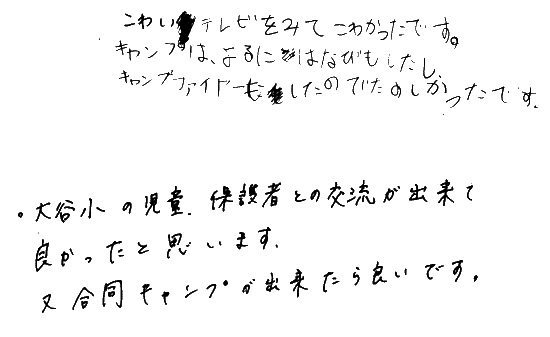 こわいテレビをみてこわかったです。
キャンプは、よるにはなびもしたし
キャンプファイヤーもしたのでたのしかったです。
・大谷小の児童、保護者との交流が出来て
良かったと思います。
又合同キャンプが出来たら良いです。